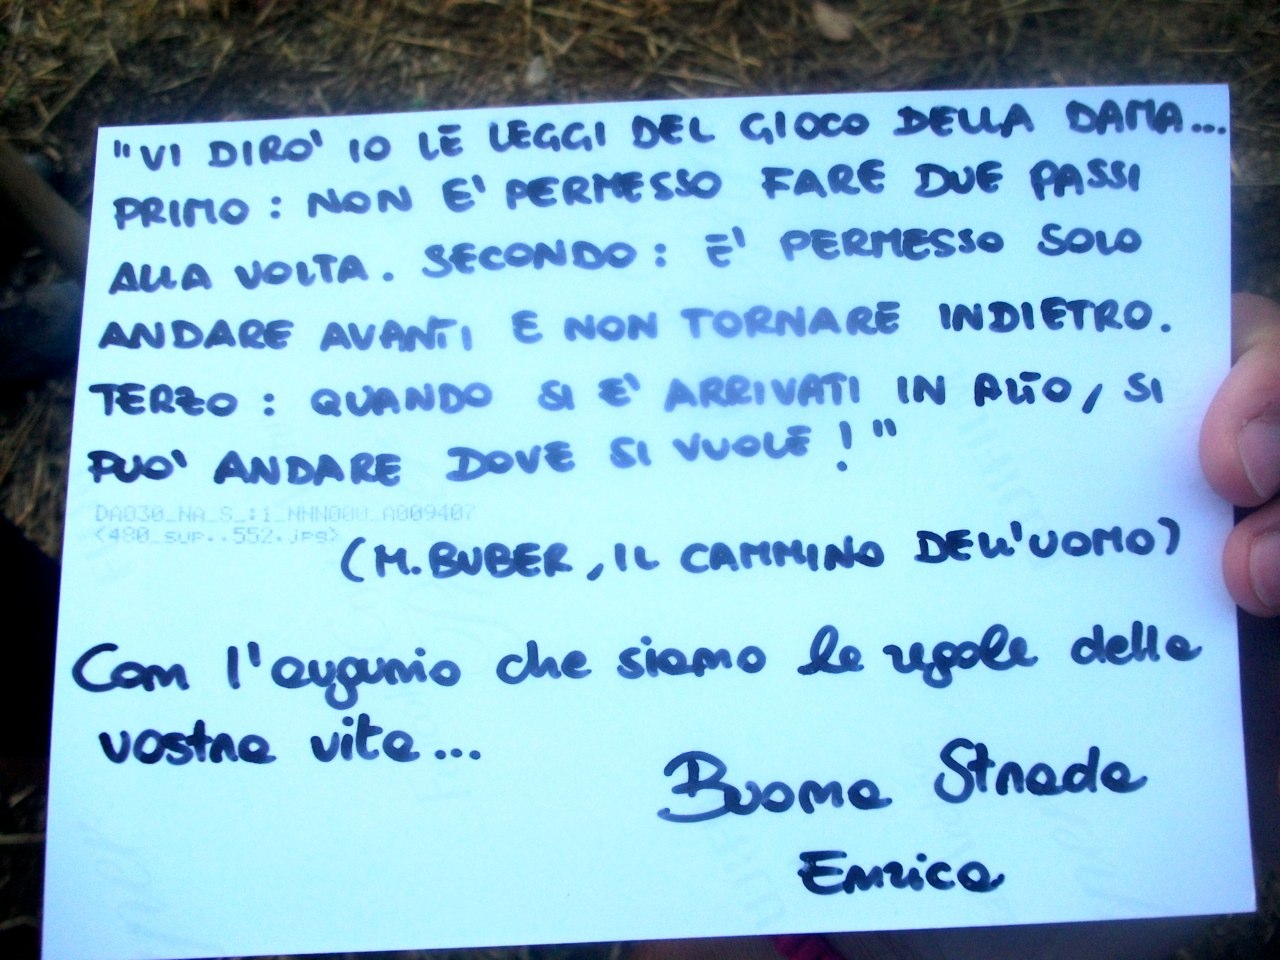 "VI DIRO' IO LE LEGGI DEL GIOCO DELLA DAMA...
PRIMO : NON E' PERMESSO FARE DUE PASSI
ALLA VOLTA. SECONDO : E' PERMESSO SOLO
ANDARE AVANTI E NON TORNARE INDIETRO.
TERZO : QUANDO SI E' ARRIVATI IN ALTO, SI
PUO' ANDARE DOVE SI VUOLE !"
DA030_NA_S_:1_NHN00U_A009407
<480_sup..552.jpg>
(M. BUBER, IL CAMMINO DELL'UOMO)
Con l'augurio che siano le regole della
vostra vita...
Buona Strada
Enrica